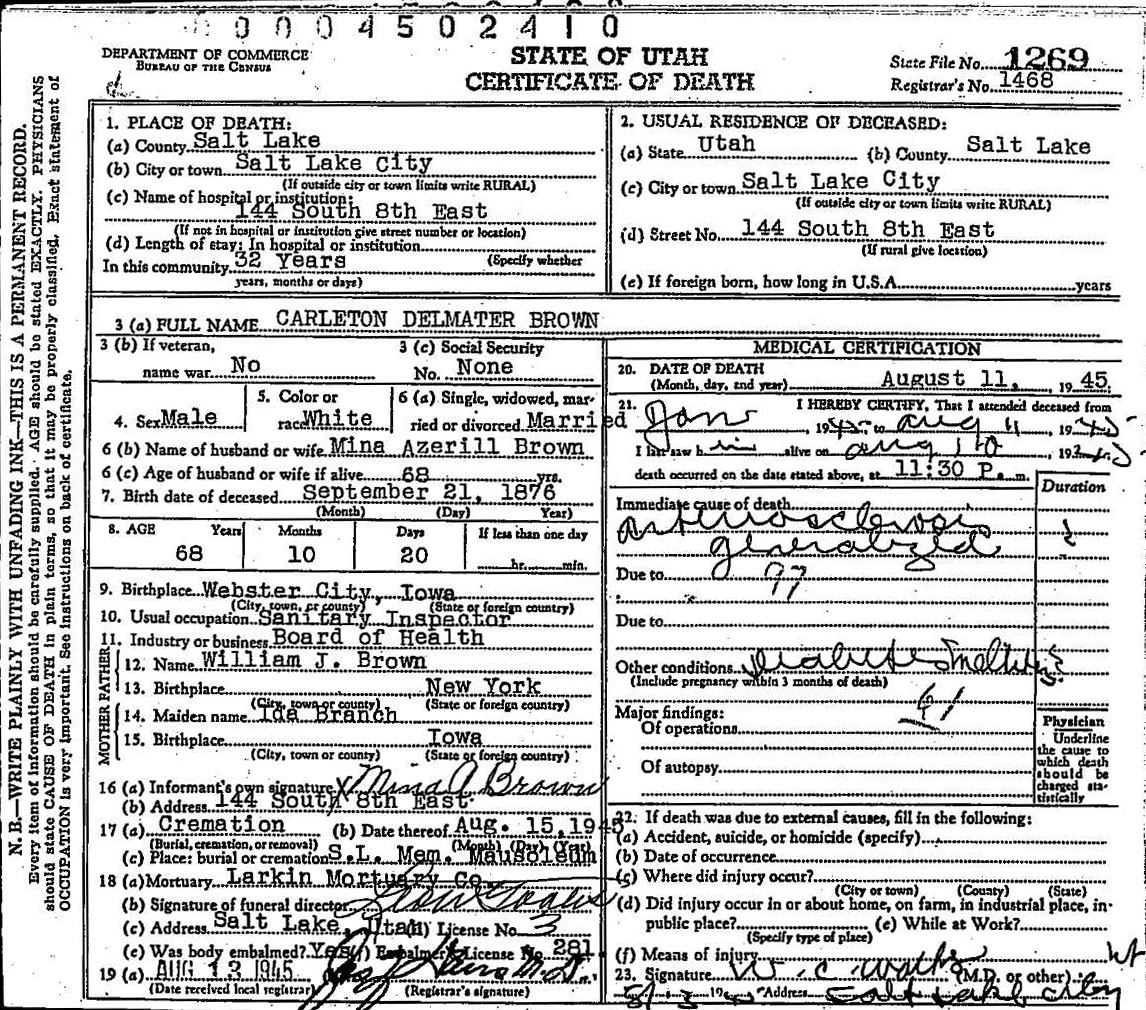 0004502410
DEPARTMENT OF COMMERCE
BUREAU OF THE CENSUS
STATE OF UTAH
CERTIFICATE OF DEATH
State File No. 1269
Registrar's No. 1468
N. B.—WRITE PLAINLY WITH UNFADING INK—THIS IS A PERMANENT RECORD.
Every item of information should be carefully supplied. AGE should be stated EXACTLY. PHYSICIANS
should state CAUSE OF DEATH in plain terms, so that it may be properly classified. Exact statement of
OCCUPATION is very important. See instructions on back of certificate.
1. PLACE OF DEATH:
(a) County Salt Lake
(b) City or town Salt Lake City
(If outside city or town limits write RURAL)
(c) Name of hospital or institution:
144 South 8th East
(If not in hospital or institution give street number or location)
(d) Length of stay: In hospital or institution
(Specify whether
In this community 32 Years
years, months or days)
2. USUAL RESIDENCE OF DECEASED:
(a) State Utah (b) County Salt Lake
(c) City or town Salt Lake City
(If outside city or town limits write RURAL)
(d) Street No. 144 South 8th East
(If rural give location)
(e) If foreign born, how long in U.S.A. years
3 (a) FULL NAME CARLETON DELMATER BROWN
3 (b) If veteran,
name war No
3 (c) Social Security
No. None
4. Sex Male
5. Color or
race White
6 (a) Single, widowed, mar-
ried or divorced Married
6 (b) Name of husband or wife Mina Azerill Brown
6 (c) Age of husband or wife if alive 68 yrs.
7. Birth date of deceased September 21, 1876
(Month) (Day) Year)
8. AGE Years Months Days If less than one day
68 10 20 hr. min.
9. Birthplace Webster City, Iowa
(City, town, or county) (State or foreign country)
10. Usual occupation Sanitary Inspector
11. Industry or business Board of Health
FATHER
12. Name William J. Brown
13. Birthplace New York
(City, town or county) (State or foreign country)
MOTHER
14. Maiden name Ida Branch
15. Birthplace Iowa
(City, town or county) (State or foreign country)
16 (a) Informant's own signature X Mina A Brown
(b) Address 144 South 8th East
17 (a) Cremation (b) Date thereof Aug. 15, 1945
(Burial, cremation, or removal) (Month) (Day) (Year)
(c) Place: burial or cremation S.L. Mem. Mausoleum
18 (a) Mortuary Larkin Mortuary Co.
(b) Signature of funeral director
(c) Address Salt Lake, Utah (d) License No. 3
(e) Was body embalmed? Yes (f) Embalmer's License No. 281
19 (a) AUG 13 1945
(Date received local registrar) (Registrar's signature)
MEDICAL CERTIFICATION
20. DATE OF DEATH
(Month, day, and year) August 11, 1945.
21. I HEREBY CERTIFY, That I attended deceased from
Jan, 1945 to Aug 11, 1945
I last saw him alive on Aug 10, 1945
death occurred on the date stated above, at 11:30 P. m.
Duration
Immediate cause of death
Arteriosclerosis
generalized
Due to 97
Due to
Other conditions Diabetes Mellitus
(Include pregnancy within 3 months of death)
61
Major findings:
Of operations
Of autopsy
Physician
Underline
the cause to
which death
should be
charged sta-
tistically
22. If death was due to external causes, fill in the following:
(a) Accident, suicide, or homicide (specify)
(b) Date of occurrence
(c) Where did injury occur?
(City or town) (County) (State)
(d) Did injury occur in or about home, on farm, in industrial place, in
public place? (e) While at Work?
(Specify type of place)
(f) Means of injury
23. Signature W. C. (M.D. or other)
Address Salt Lake City